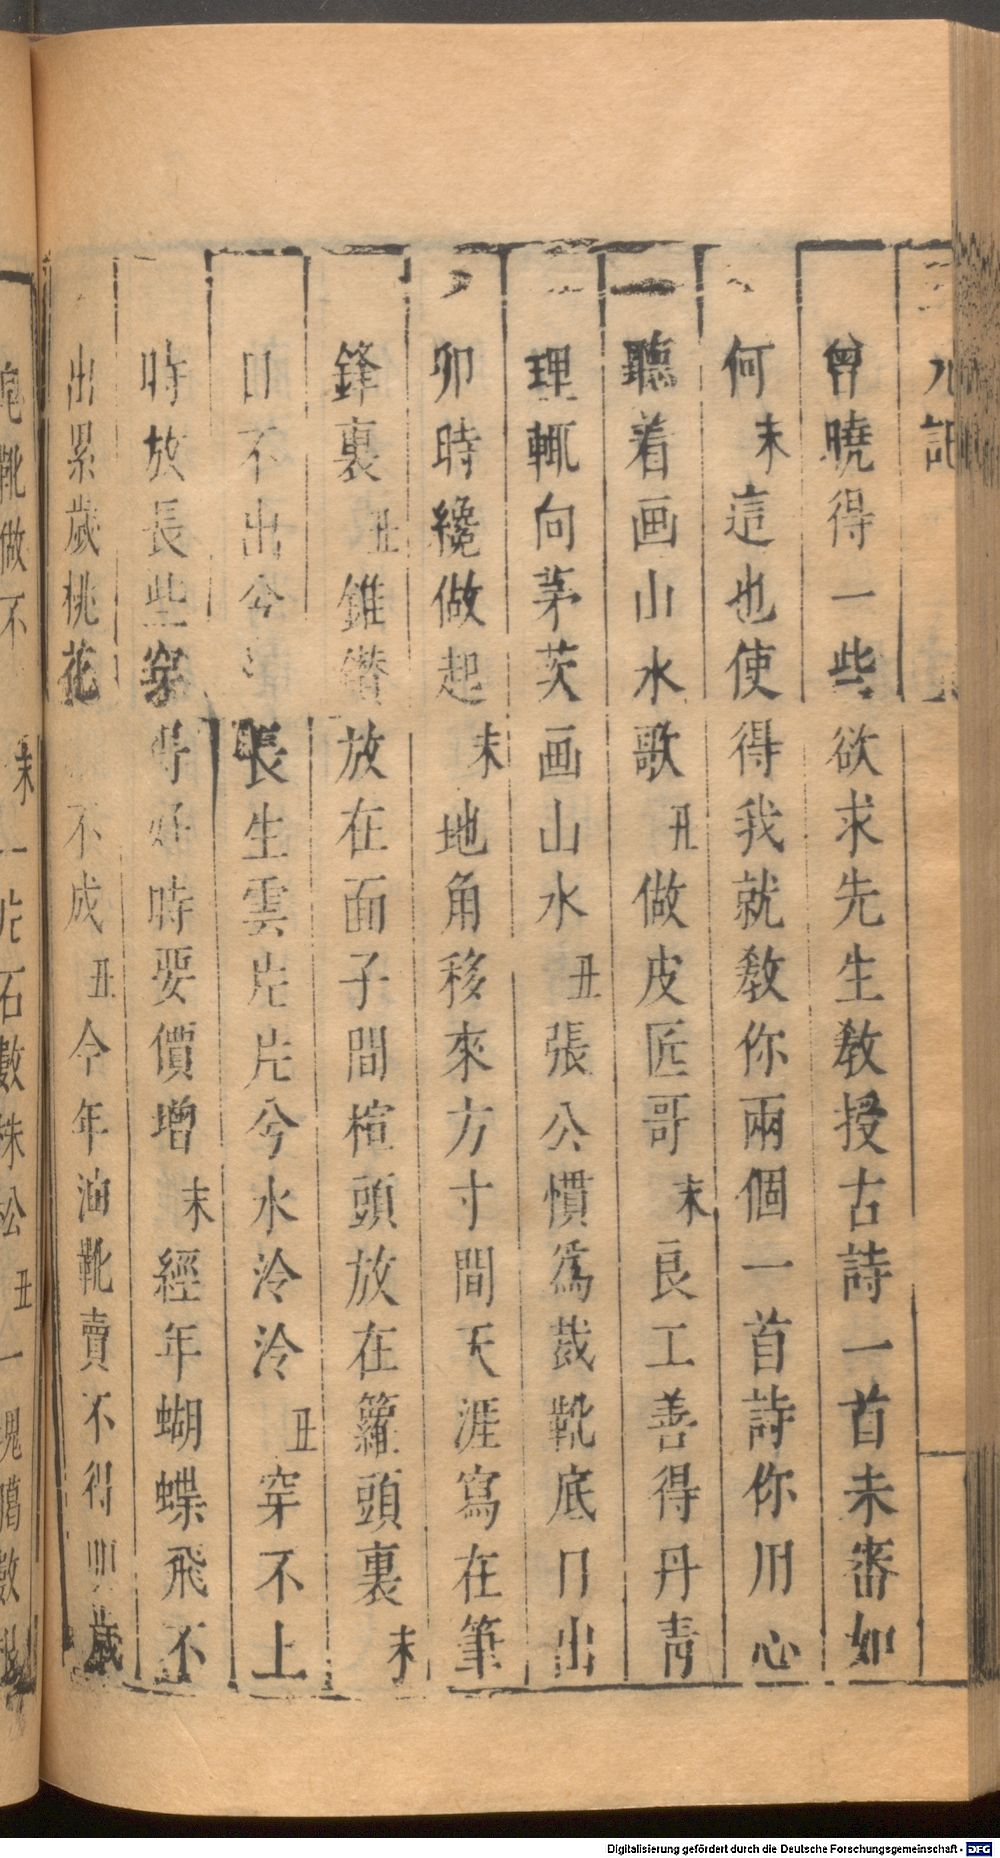 曾曉得一些欲求先生教授古詩一首未審如
何末這也使得我就教你兩個一首詩你用心
聽着画山水歌丑做皮匠哥末良工善得丹青
理輒向茅茨画山水丑張公慣爲裁靴底日出
卯時纔做起末地角移來方寸間天涯寫在筆
鋒裏丑錐儹放在面子間楦頭放在籮頭裏末
日不出兮長生雲片片兮水泠泠丑穿不上
時放長些穿得好時要價增末經年蝴蝶飛不
出累歲桃花不成丑今年油靴賣不得明歲
皂靴做不末一片石數株松丑一塊 數
Digitalisierung gefördert durch die Deutsche Forschungsgemeinschaft - DFG